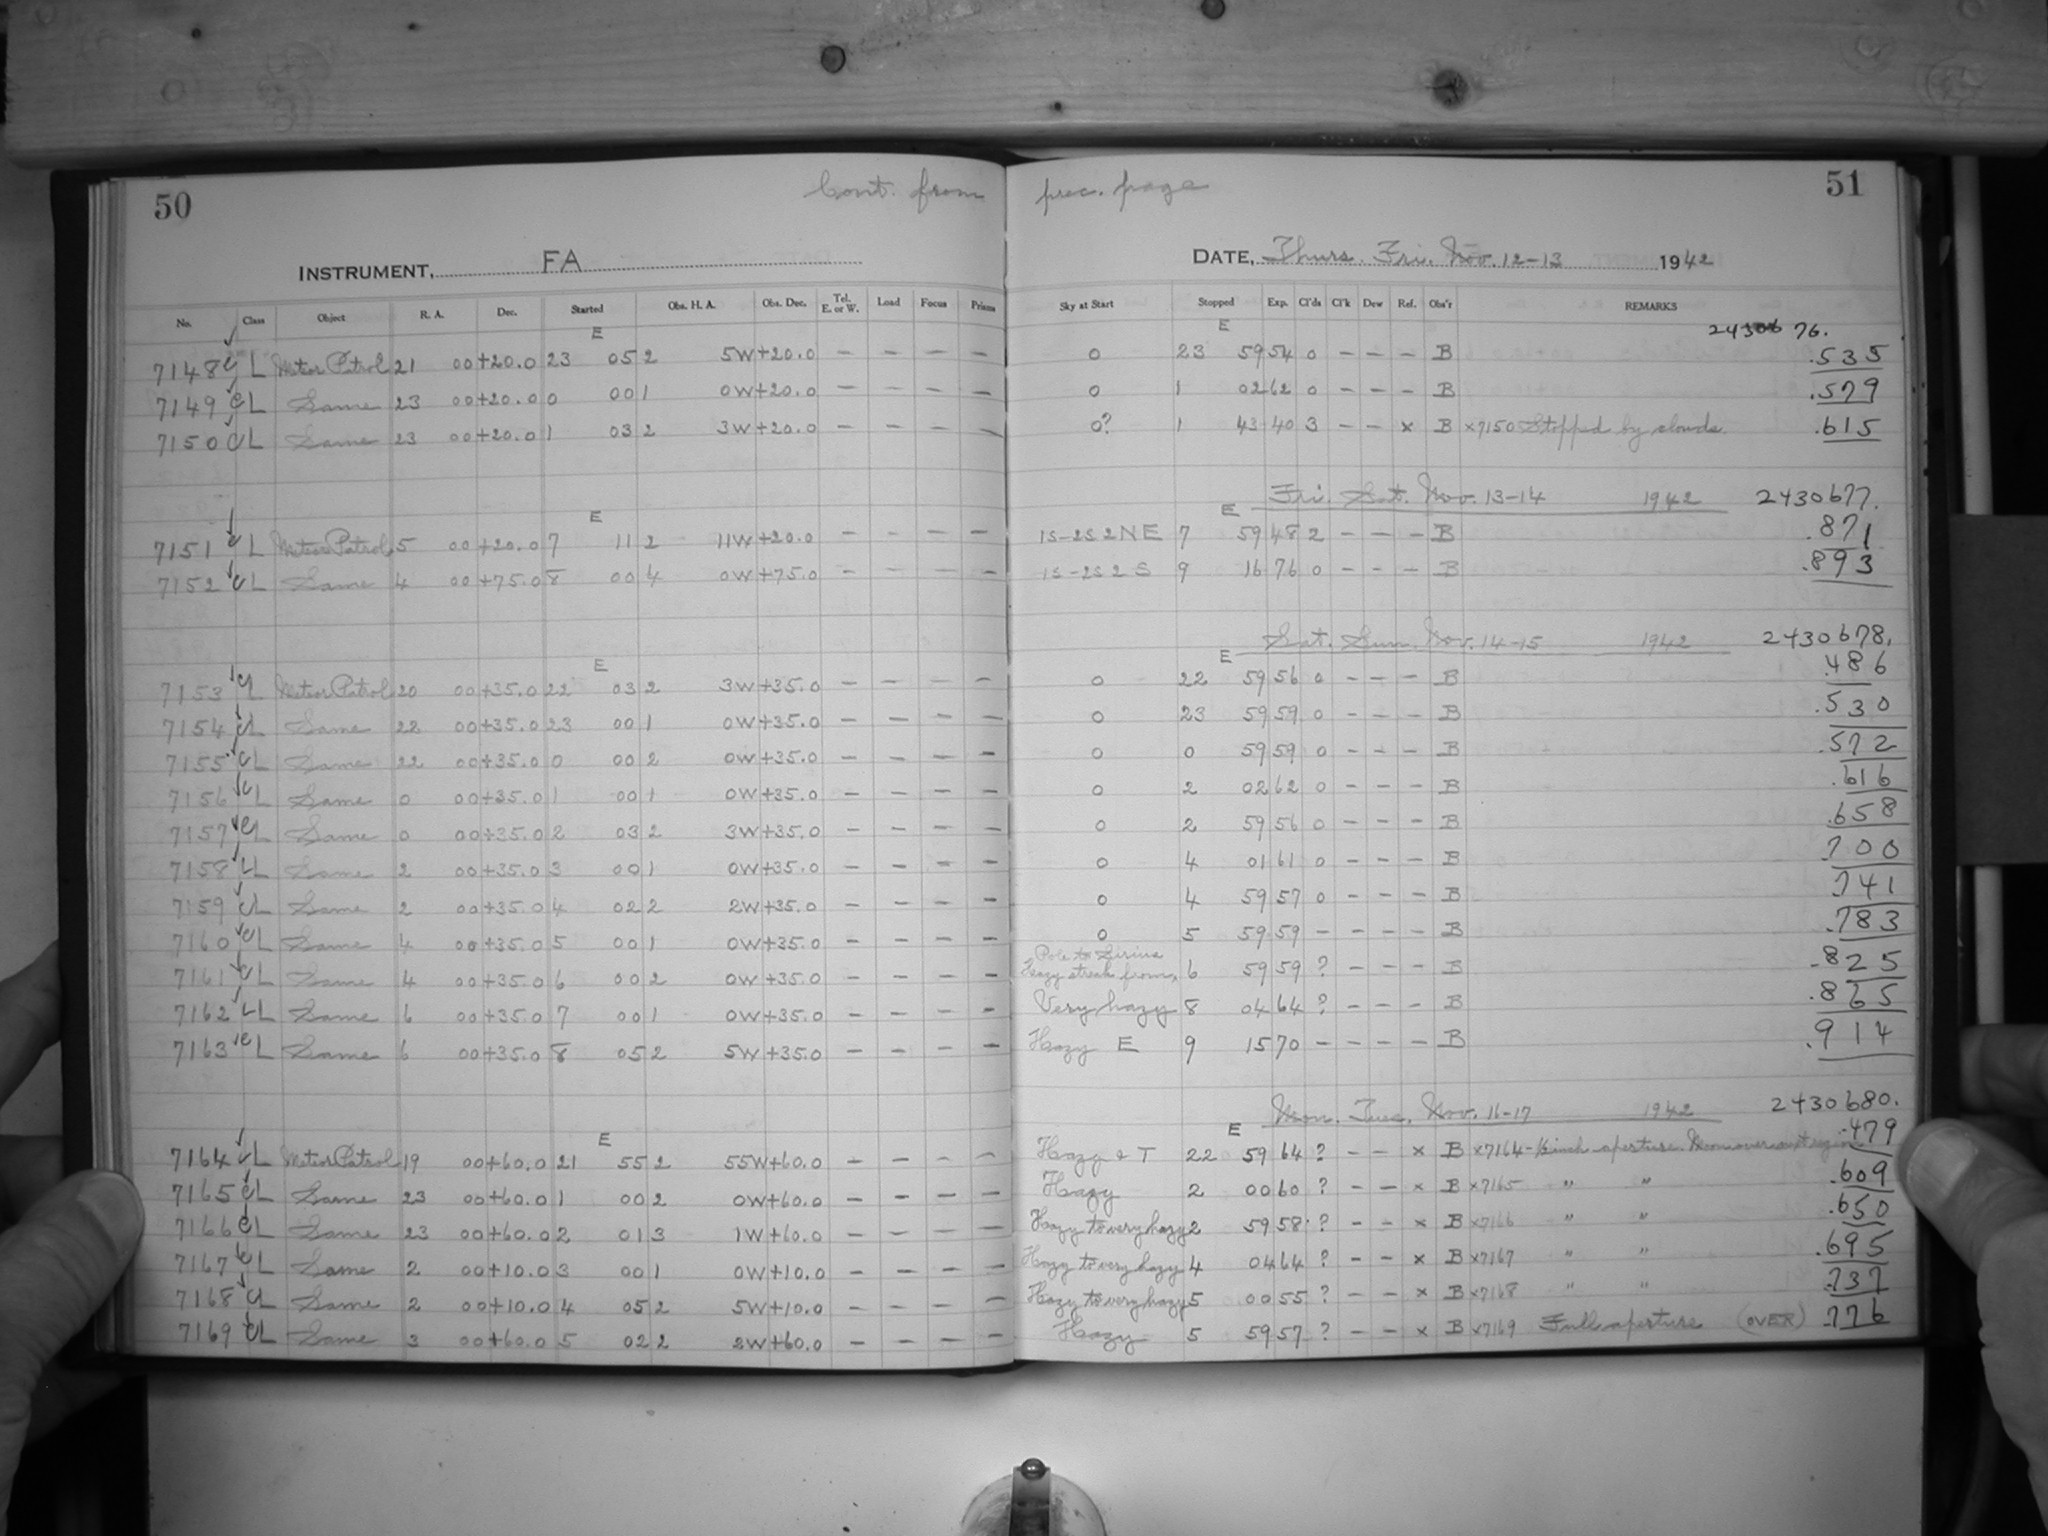 50
Cont. from prec. page
51
INSTRUMENT, FA
DATE, Thurs. Fri. Nov. 12-13 1942
No. Class Object R. A. Dec. Started Obs. H. A. Obs. Dec. Tel. E. or W. Load Focus Prisms Sky at Start Stopped Exp. Cl'ds Cl'k Dew Ref. Obs'r REMARKS
E E 76.
7148 CL Meteor Patrol 21 00 +20.0 23 05 2 5W +20.0 – – – – 0 23 59 54 0 – – – B .535
7149 CL Same 23 00 +20.0 0 00 1 0W +20.0 – – – – 0 1 02 62 0 – – – B .579
7150 CL Same 23 00 +20.0 1 03 2 3W +20.0 – – – – 0? 1 43 40 3 – – x B x7150 Stopped by clouds .615
Fri. Sat. Nov. 13-14 1942 2430677.
E E
7151 CL Meteor Patrol 5 00 +20.0 7 11 2 11W +20.0 – – – – 1S-2S 2NE 7 59 48 2 – – – B .871
7152 CL Same 4 00 +75.0 8 00 4 0W +75.0 – – – – 1S-2S 2 S 9 16 76 0 – – – B .893
Sat. Sun. Nov. 14-15 1942 2430678.
E E
7153 CL Meteor Patrol 20 00 +35.0 22 03 2 3W +35.0 – – – – 0 22 59 56 0 – – – B .486
7154 CL Same 22 00 +35.0 23 00 1 0W +35.0 – – – – 0 23 59 59 0 – – – B .530
7155 CL Same 22 00 +35.0 0 00 2 0W +35.0 – – – – 0 0 59 59 0 – – – B .572
7156 CL Same 0 00 +35.0 1 00 1 0W +35.0 – – – – 0 2 02 62 0 – – – B .616
7157 CL Same 0 00 +35.0 2 03 2 3W +35.0 – – – – 0 2 59 56 0 – – – B .658
7158 CL Same 2 00 +35.0 3 00 1 0W +35.0 – – – – 0 4 01 61 0 – – – B .700
7159 CL Same 2 00 +35.0 4 02 2 2W +35.0 – – – – 0 4 59 57 0 – – – B .741
7160 CL Same 4 00 +35.0 5 00 1 0W +35.0 – – – – 0 5 59 59 – – – – B .783
Pole to Sirius
7161 CL Same 4 00 +35.0 6 00 2 0W +35.0 – – – – Hazy streak from 6 59 59 ? – – – B .825
7162 CL Same 6 00 +35.0 7 00 1 0W +35.0 – – – – Very hazy 8 04 64 ? – – – B .865
7163 CL Same 6 00 +35.0 8 05 2 5W +35.0 – – – – Hazy E 9 15 70 – – – – B .914
Mon. Tues. Nov. 16-17 1942 2430680.
E E
7164 CL Meteor Patrol 19 00 +60.0 21 55 2 55W +60.0 – – – – Hazy & T 22 59 64 ? – – x B x7164 - ½ inch aperture. Moon over .479
7165 CL Same 23 00 +60.0 1 00 2 0W +60.0 – – – – Hazy 2 00 60 ? – – x B x7165 " " .609
7166 CL Same 23 00 +60.0 2 01 3 1W +60.0 – – – – Hazy to very hazy 2 59 58 ? – – x B x7166 " " .650
7167 CL Same 2 00 +10.0 3 00 1 0W +10.0 – – – – Hazy to very hazy 4 04 64 ? – – x B x7167 " " .695
7168 CL Same 2 00 +10.0 4 05 2 5W +10.0 – – – – Hazy to very hazy 5 00 55 ? – – x B x7168 " " .737
7169 CL Same 3 00 +60.0 5 02 2 2W +60.0 – – – – Hazy 5 59 57 ? – – x B x7169 Full aperture (OVER) .776